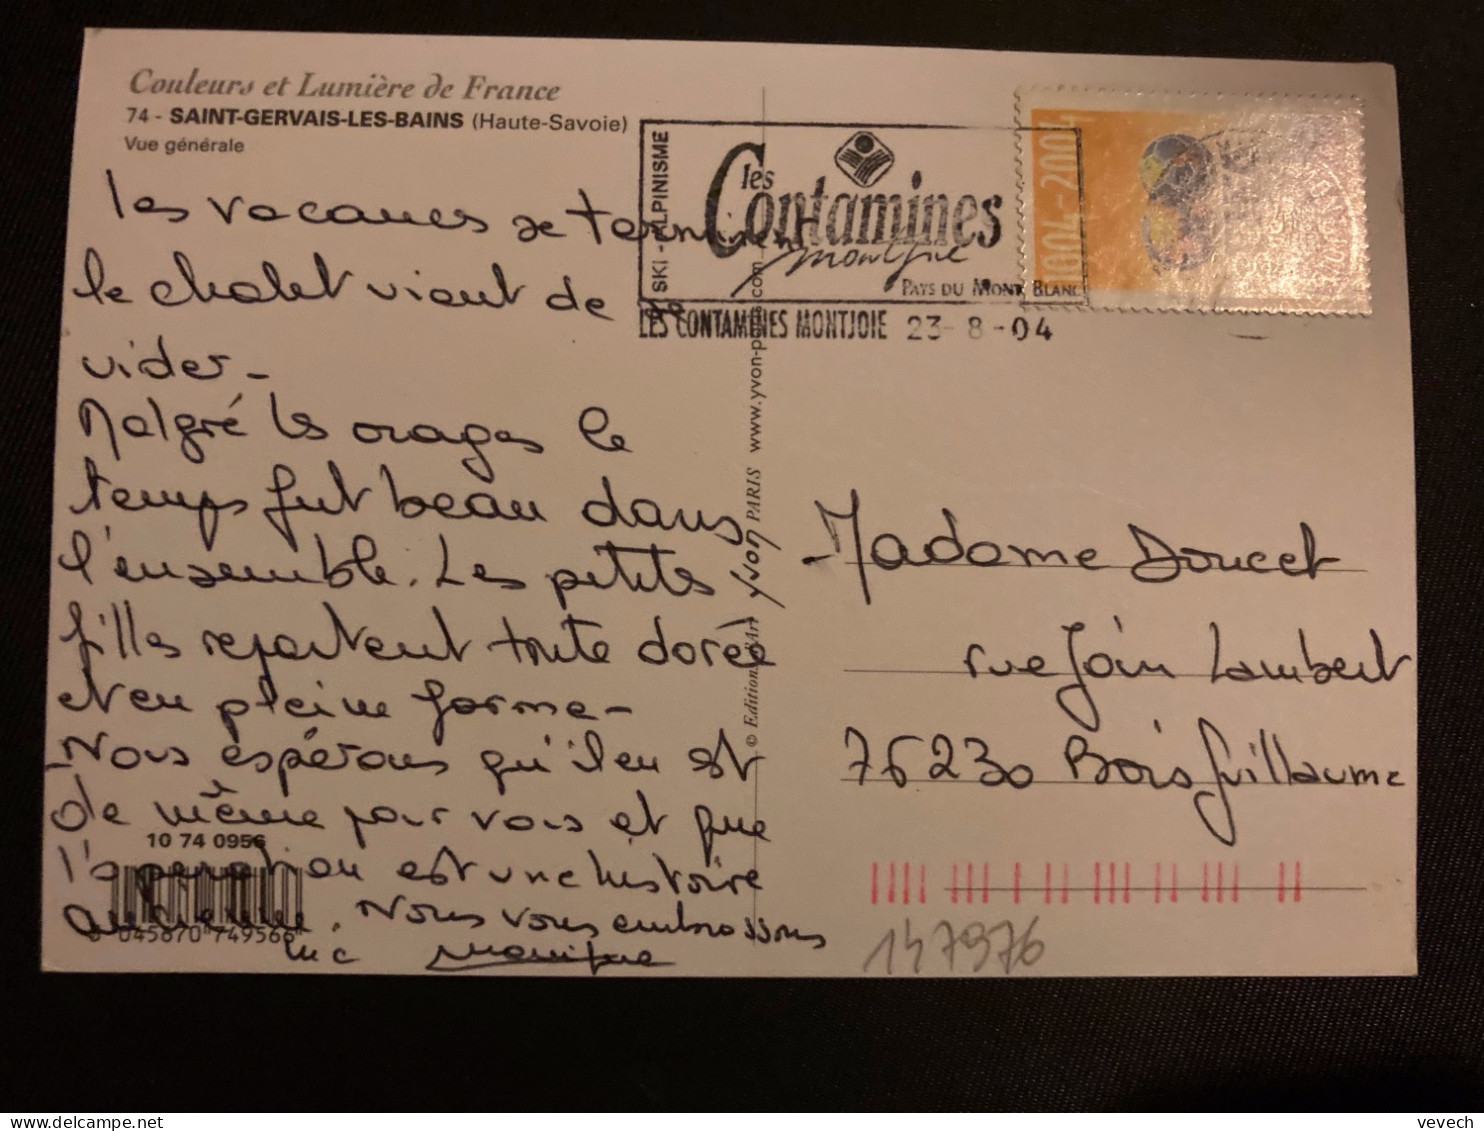 Couleurs et Lumière de France
74 - SAINT-GERVAIS-LES-BAINS (Haute-Savoie)
Vue générale
Les vacances se terminent
le chalet vient de se
vider -
Malgré les orages le
temps fut beau dans
l'ensemble. Les petites
filles repartent toute dorée
et en pleine forme -
Nous espérons qu'il en est
de même pour vous et que
l'opération est une histoire
ancienne. Nous vous embrassons
Monique
10 74 0956
045670 749566
© Editions d'Art yvon PARIS www.yvon-p .com
SKI - ALPINISME
les
Contamines
montjoie
PAYS DU MONT BLANC
LES CONTAMINES MONTJOIE 23-8-04
1904-2004
Madame Doucet
rue Join Lambert
76230 Bois Guillaume
147976
vevech